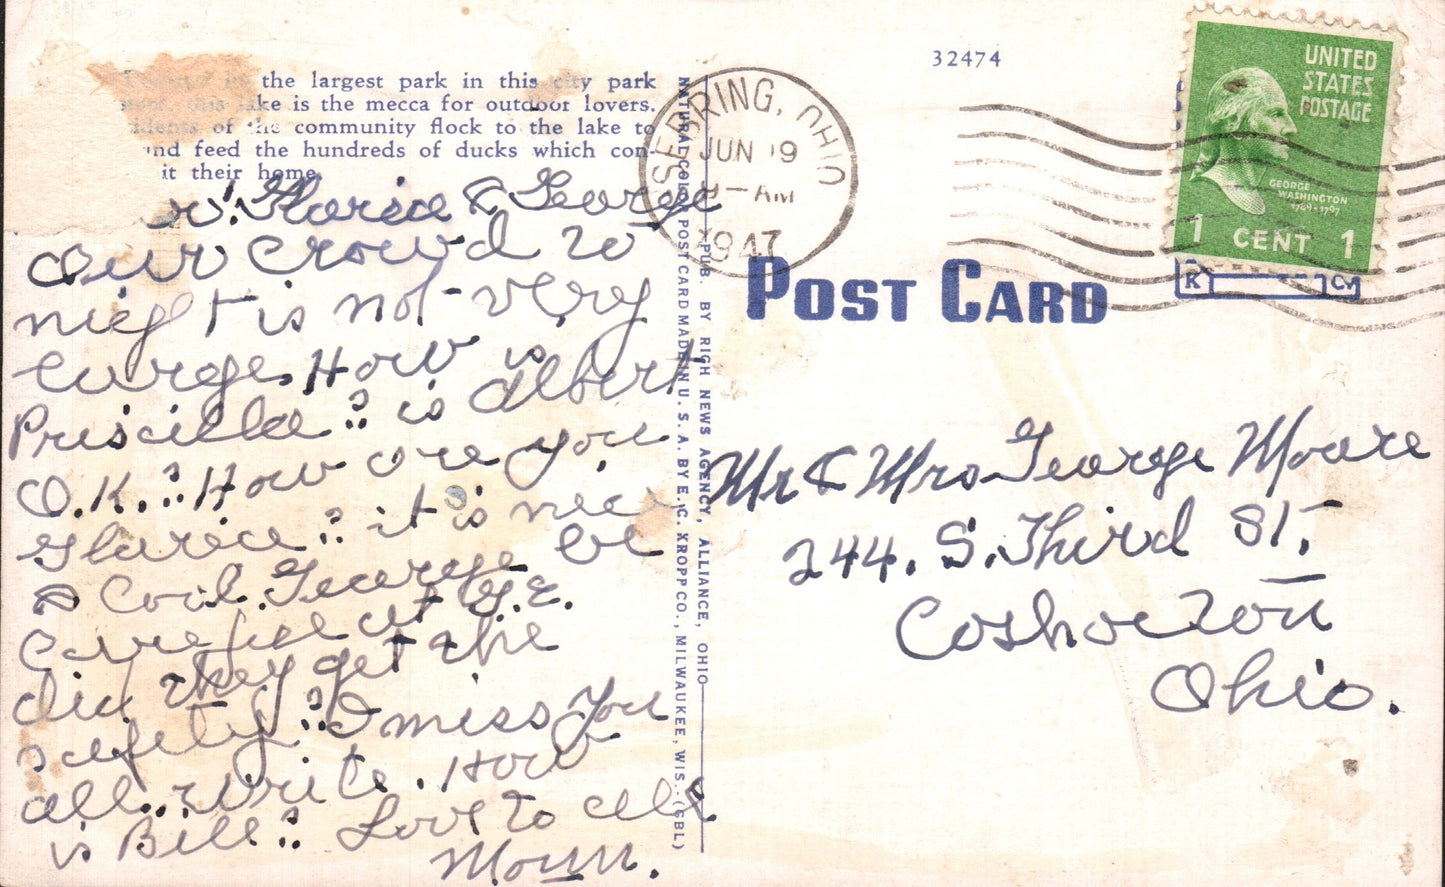 the largest park in this city park
this lake is the mecca for outdoor lovers.
of the community flock to the lake to
and feed the hundreds of ducks which con-
it their home.
Glarice & George
Our Crowd to
night is not very
large. How is
Priscilla? is Albert
O.K.? How are you
Glarice? it is nice
& Cool. George be
Careful at G.E.
did they get the
safety? I miss you
all. write. How
is Bill? Love to all
Mom.
NATURAL COLOR POST CARD MADE IN U.S.A. BY E. C. KROPP CO., MILWAUKEE, WIS. (GBL)
PUB. BY RIGH NEWS AGENCY, ALLIANCE, OHIO
32474
SEBRING, OHIO
JUN 19
-AM
1947
UNITED
STATES
POSTAGE
GEORGE
WASHINGTON
1789-1797
1 CENT 1
K Co
POST CARD
Mr & Mrs George Moore
244. S. Third St.
Coshocton
Ohio.